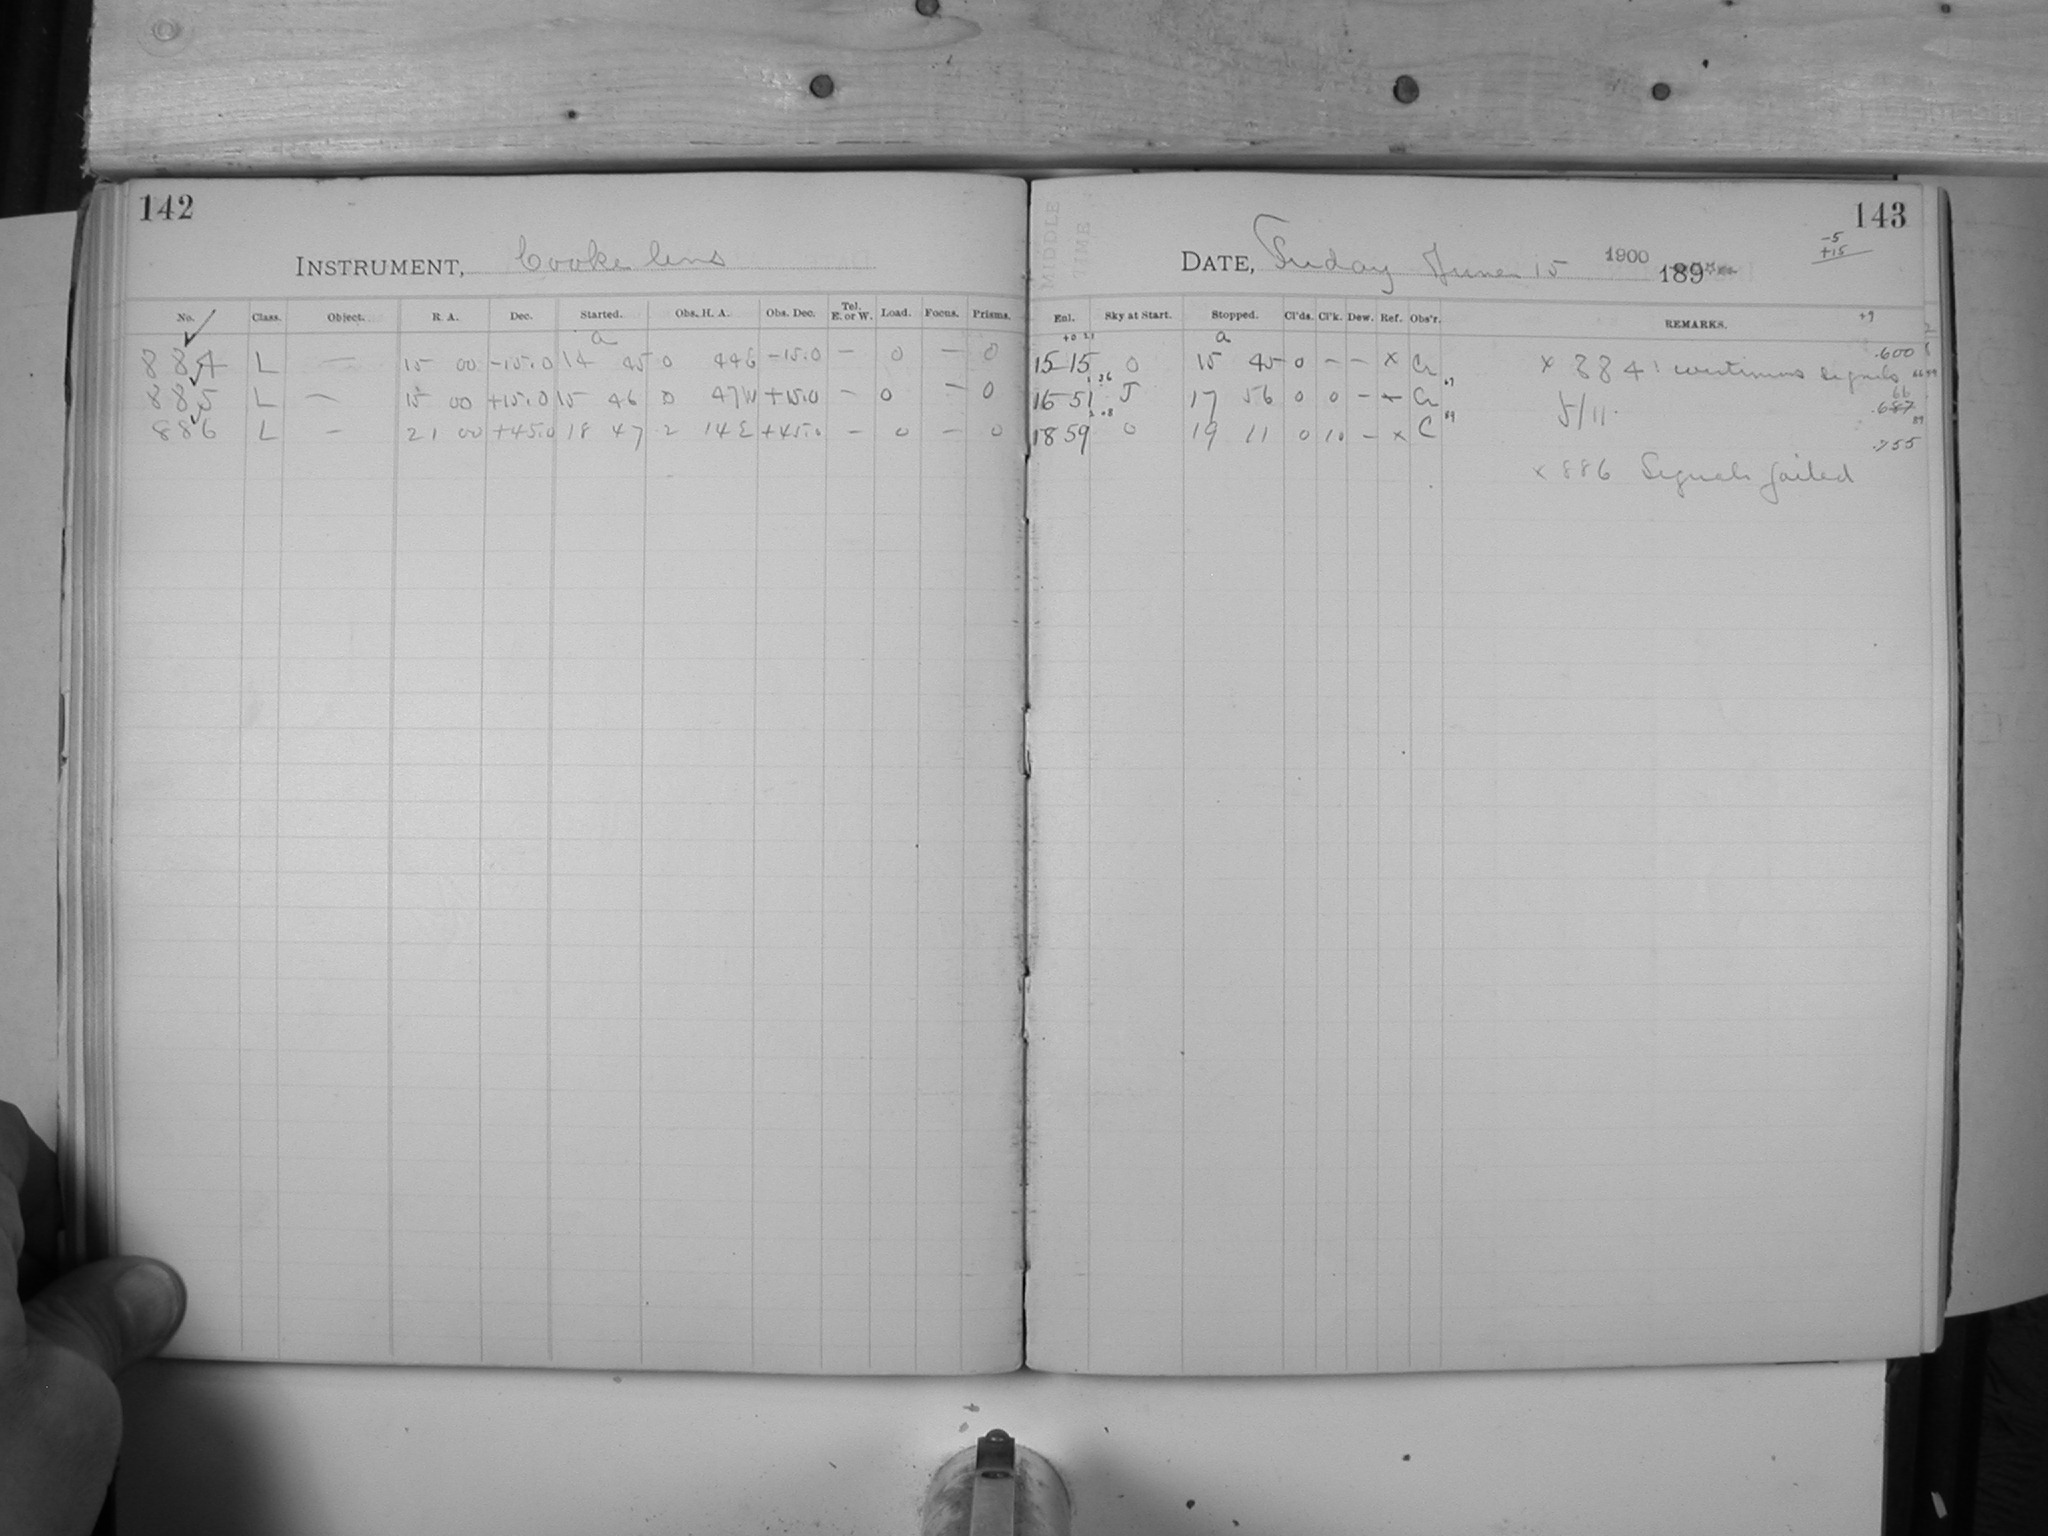 142
INSTRUMENT, Cooke lens
No. Class. Object. R. A. Dec. Started. Obs. H. A. Obs. Dec. Tel. E. or W. Load. Focus. Prisms.
a
884 L — 15 00 -15.0 14 45 0 44E -15.0 — 0 — 0
885 L — 15 00 +15.0 15 46 0 47W +15.0 — 0 — 0
886 L — 21 00 +45.0 18 47 2 14E +45.0 — 0 — 0
143
-5
+15
MIDDLE
TIME
DATE, Friday June 15 1900 189
Enl. Sky at Start. Stopped. Cl'ds. Cl'k. Dew. Ref. Obs'r. REMARKS. +9
a
15 15 0 15 45 0 — — x Cr x 884: continuous signals .600
16 51 5 17 56 0 0 — — Cr 5/11. .687
66
18 59 0 19 11 0 10 — x C .755
x 886 Signals failed